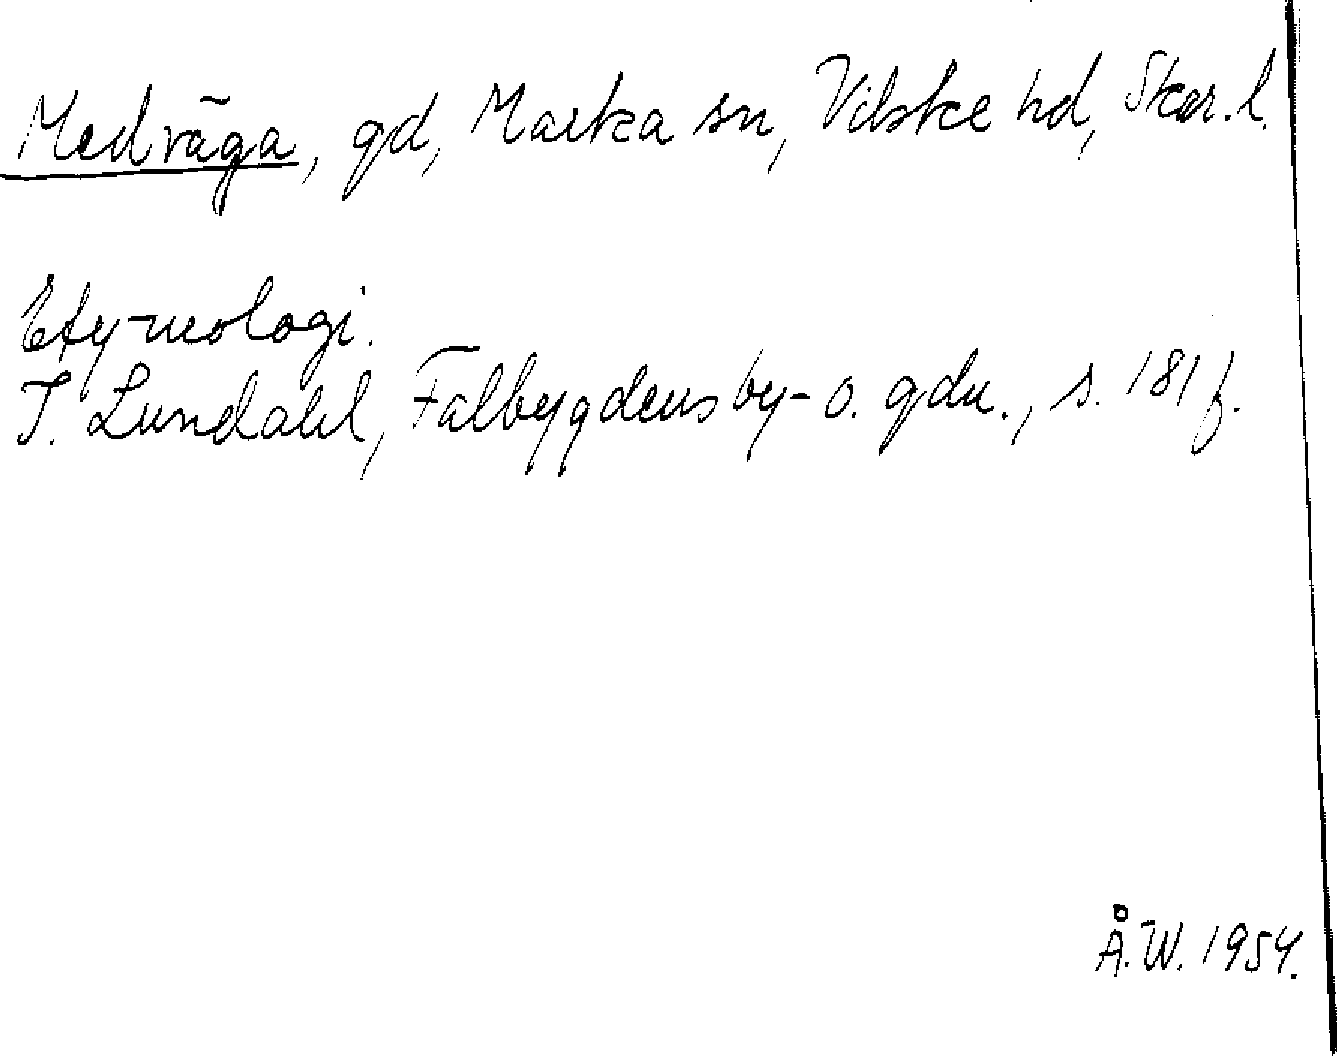 Medväga, gd, Marka sn, Vilske hd, Skar. l.
Etymologi.
I. Lundahl, Falbygdens by- o. gdn., s. 181 f.
Å.W. 1954.